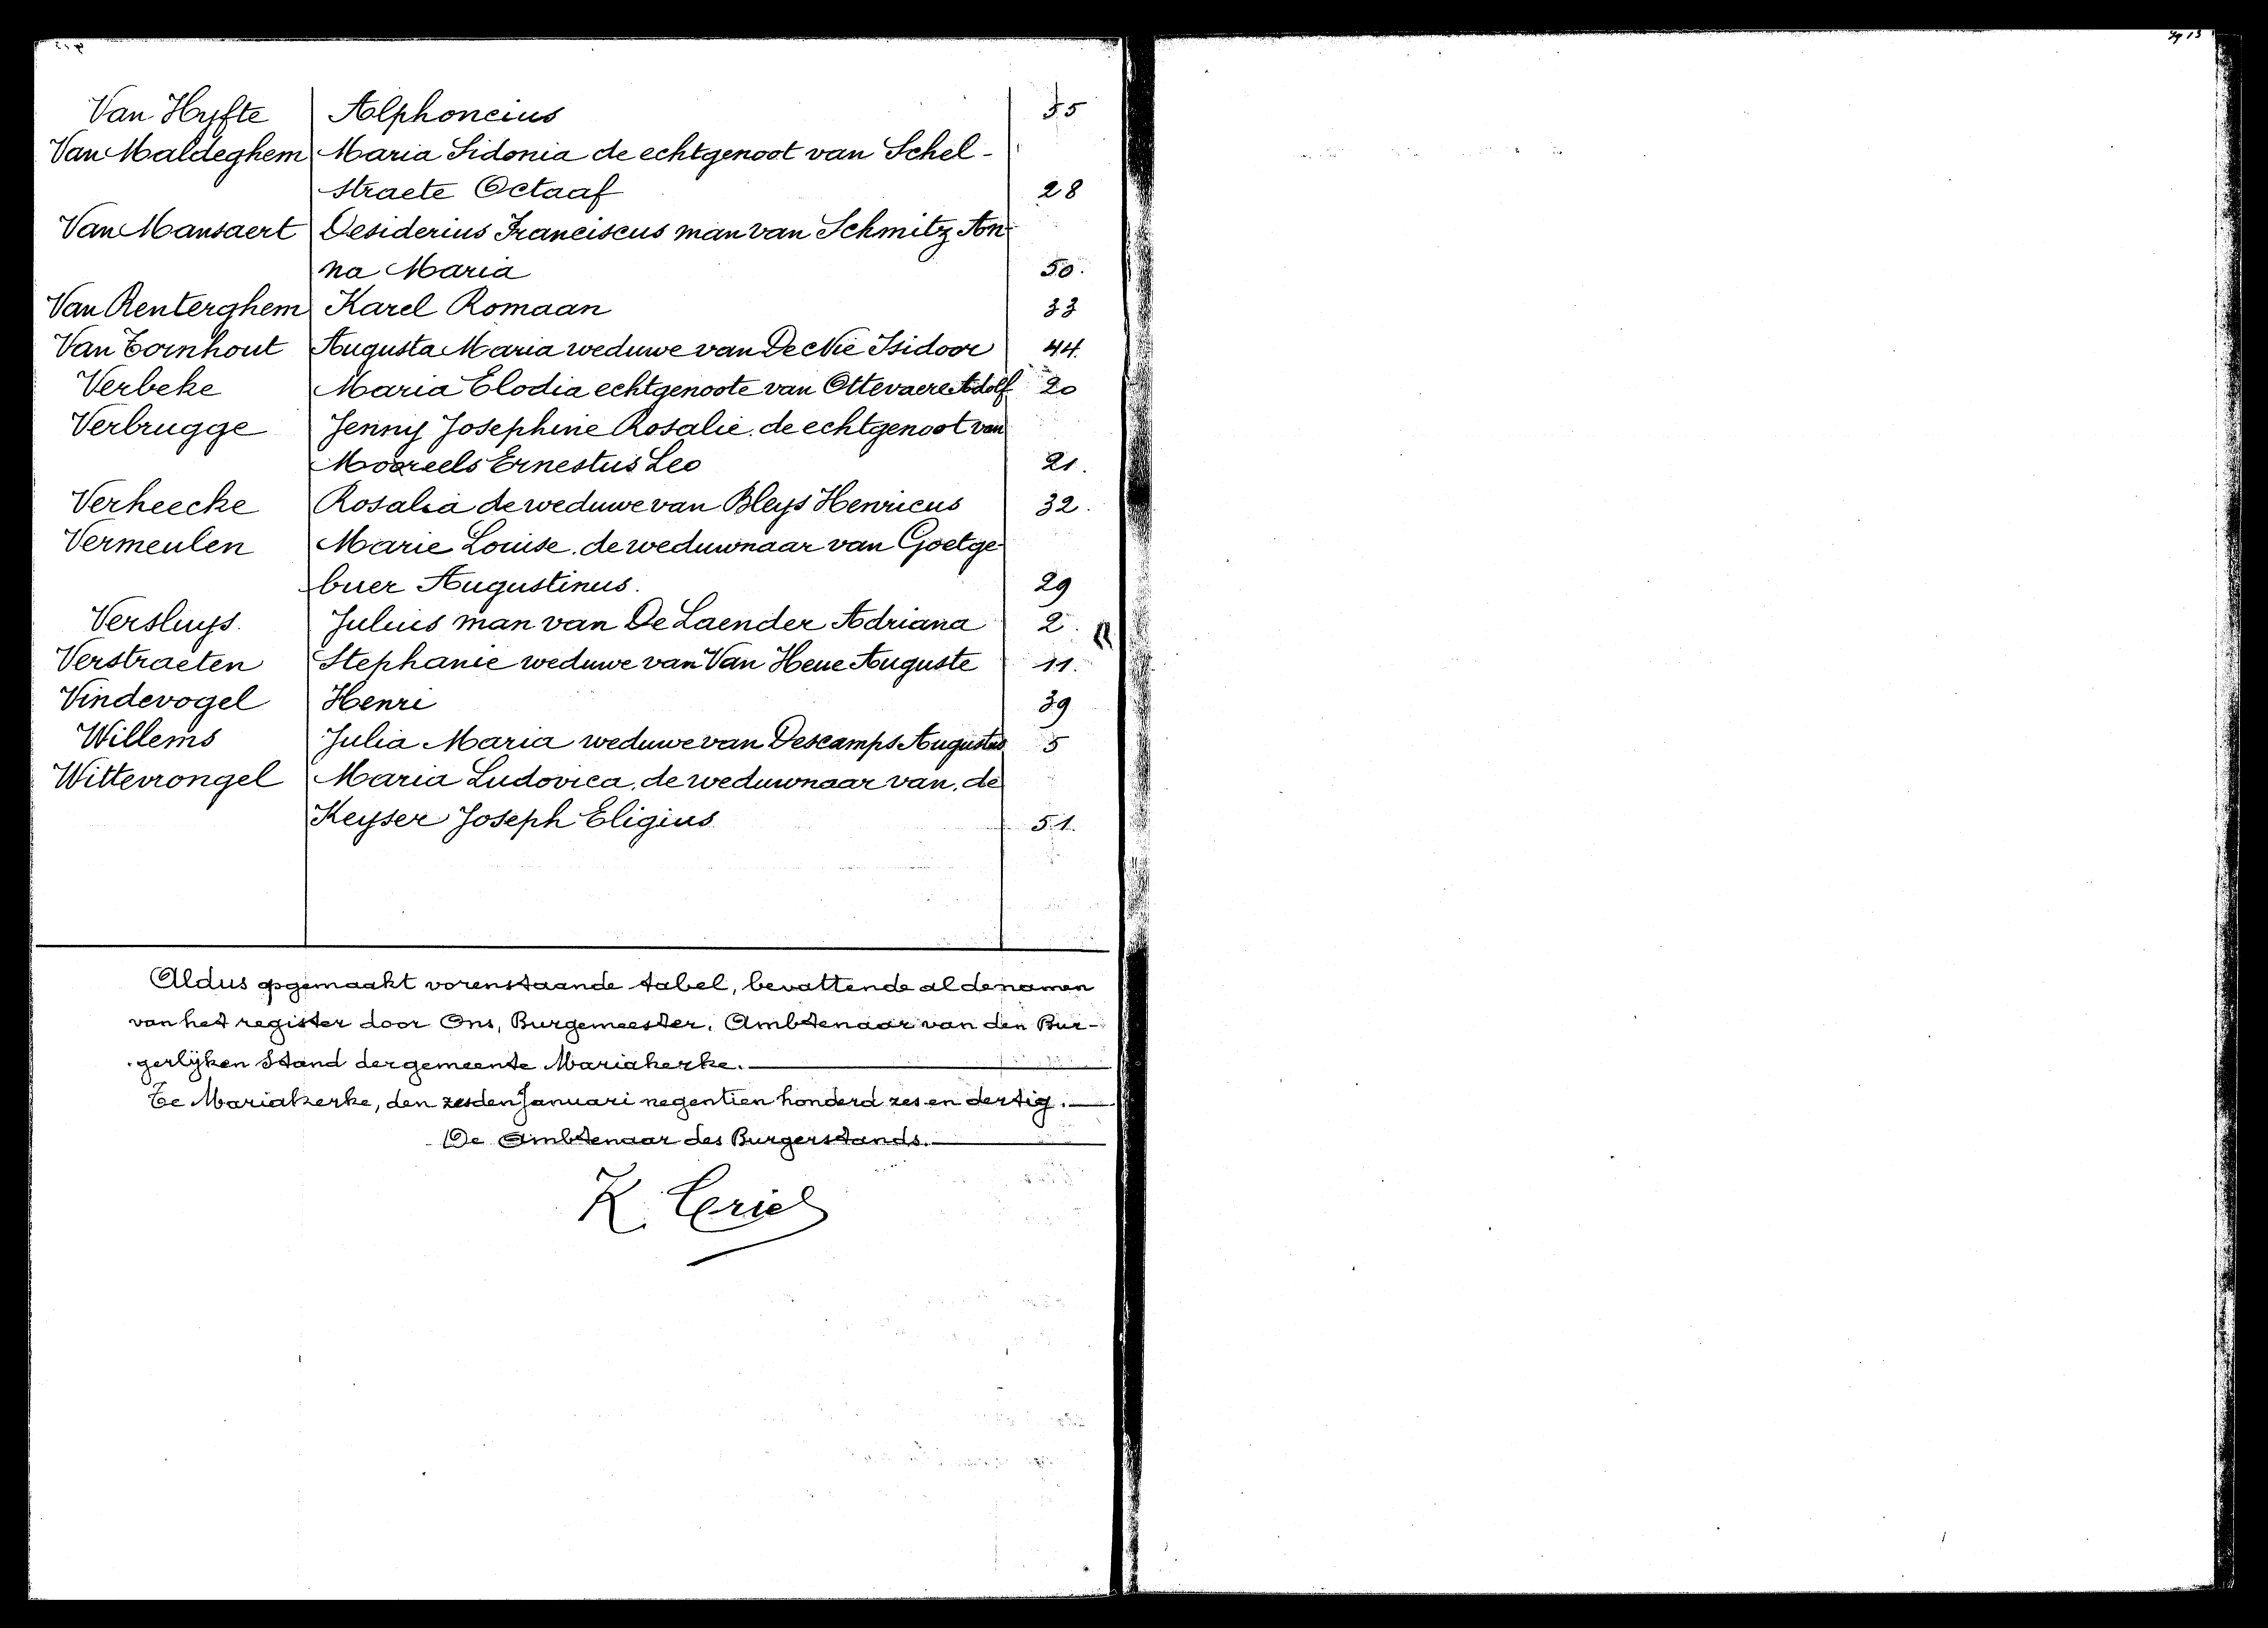 Van Hyfte Alphoncius 55
Van Maldeghem Maria Sidonia de echtgenoot van Schel-
straete Octaaf 28
Van Mansaert Desiderius Franciscus man van Schmitz An-
na Maria 50.
Van Renterghem Karel Romaan 33
Van Tornhout Augusta Maria weduwe van De Nie Isidoor 44.
Verbeke Maria Elodia echtgenoote van Ottevaere Adolf 20
Verbrugge Jenny Josephine Rosalie. de echtgenoot van
Mooreels Ernestus Leo 21.
Verheecke Rosalia de weduwe van Bleys Henricus 32.
Vermeulen Marie Louise. de weduwnaar van Goetge-
buer Augustinus. 29
Versluys. Julius man van De Laender Adriana 2.
Verstraeten Stephanie weduwe van Van Heue Auguste 11.
Vindevogel Henri 39
Willems Julia Maria weduwe van Descamps Augustus 5
Wittevrongel Maria Ludovica. de weduwnaar van. de
Keyser Joseph Eligius 51.
Aldus opgemaakt vorenstaande tabel, bevattende al de namen
van het register door Ons, Burgemeester, Ambtenaar van den Bur-
gerlijken Stand der gemeente Mariakerke.
Te Mariakerke, den zesden Januari negentien honderd zes en dertig.
De Ambtenaar des Burgerstands.